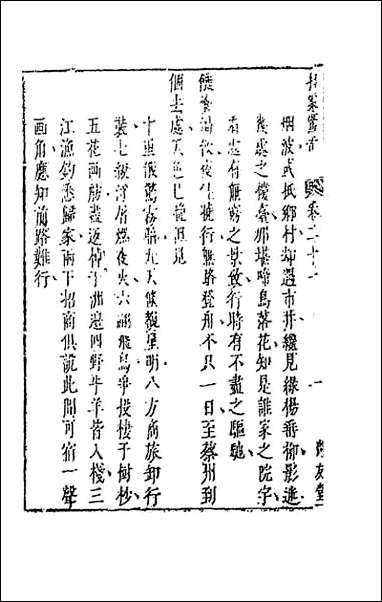 拍案驚奇 卷二十一 一 尚友堂
烟波或抵鄉村却遇市井纔見綠楊垂柳影迷
幾處之樓臺那堪啼鳥落花知是誰家之院宇
看來有無窮之景致行時有不盡之驅馳
饑飡渴飲夜住曉行無路登舟不只一日至蔡州到
個去處天色已晚但見
十里俄驚霧暗九天倐覩星明八方商旅卸行
裝七級浮屠燃夜火六翮飛鳥爭投棲于樹杪
五花画舫盡返棹于洲邊四野牛羊皆入棧三
江漁釣悉歸家兩下招商俱說此間可宿一聲
画角應知前路難行